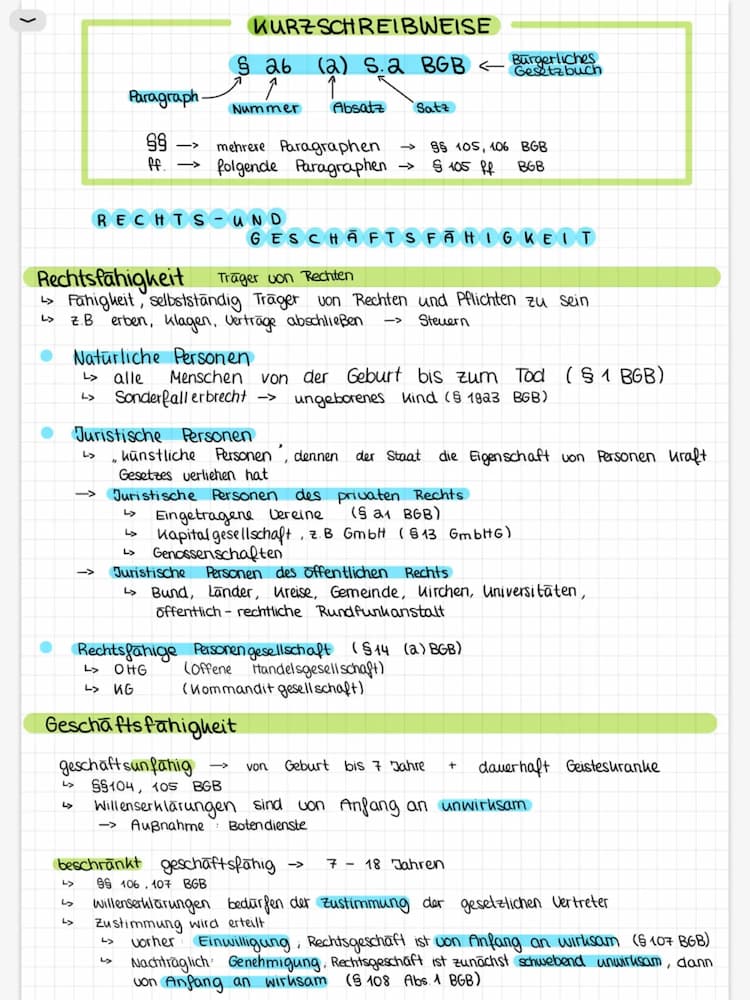 KURZSCHREIBWEISE
§ 26 (2) S.2 BGB ← Bürgerliches
Gesetzbuch
Paragraph
Nummer Absatz Satz
§§ → mehrere Paragraphen → §§ 105, 106 BGB
ff. → folgende Paragraphen → § 105 ff BGB
RECHTS-UND
GESCHÄFTSFÄHIGKEIT
Rechtsfähigkeit Träger von Rechten
↳ Fähigkeit, selbstständig Träger von Rechten und Pflichten zu sein
↳ z.B erben, klagen, Verträge abschließen → Steuern
• Natürliche Personen
↳ alle Menschen von der Geburt bis zum Tod (§ 1 BGB)
↳ Sonderfall erbrecht → ungeborenes Kind (§ 1923 BGB)
• Juristische Personen
↳ „künstliche Personen", dennen der Staat die Eigenschaft von Personen kraft
Gesetzes verliehen hat
→ Juristische Personen des privaten Rechts
↳ Eingetragene Vereine (§ 21 BGB)
↳ Kapitalgesellschaft, z.B GmbH (§ 13 GmbHG)
↳ Genossenschaften
→ Juristische Personen des öffentlichen Rechts
↳ Bund, Länder, Kreise, Gemeinde, Kirchen, Universitäten,
öffentlich-rechtliche Rundfunkanstalt
• Rechtsfähige Personengesellschaft (§ 14 (2) BGB)
↳ OHG (Offene Handelsgesellschaft)
↳ KG (Kommanditgesellschaft)
Geschäftsfähigkeit
geschäftsunfähig → von Geburt bis 7 Jahre + dauerhaft Geisteskranke
↳ §§104, 105 BGB
↳ Willenserklärungen sind von Anfang an unwirksam
→ Außnahme : Botendienste
beschränkt geschäftsfähig → 7 - 18 Jahren
↳ §§ 106, 107 BGB
↳ Willenserklärungen bedürfen der Zustimmung der gesetzlichen Vertreter
↳ Zustimmung wird erteilt
↳ vorher : Einwilligung, Rechtsgeschäft ist von Anfang an wirksam (§ 107 BGB)
↳ Nachträglich: Genehmigung, Rechtsgeschäft ist zunächst schwebend unwirksam, dann
von Anfang an wirksam (§ 108 Abs. 1 BGB)